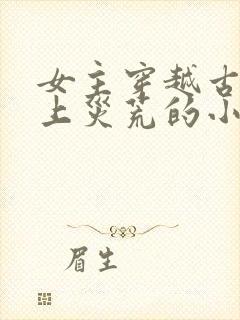 女主穿越古
上災荒的小
眉生